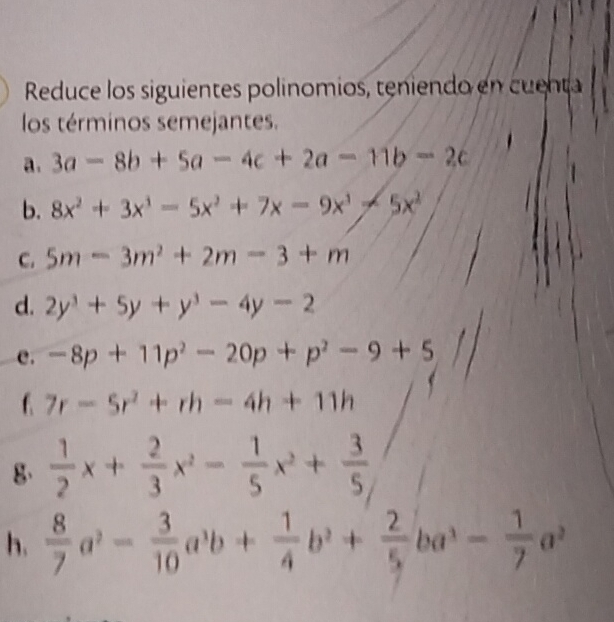 Reduce los siguientes polinomios, teniendo en cuenta
los términos semejantes.
a. 3a − 8b + 5a − 4c + 2a − 11b − 2c
b. 8x² + 3x³ − 5x² + 7x − 9x³ − 5x²
c. 5m − 3m² + 2m − 3 + m
d. 2y³ + 5y + y³ − 4y − 2
e. −8p + 11p² − 20p + p² − 9 + 5
f. 7r − 5r² + rh − 4h + 11h
g. 1/2 x + 2/3 x² − 1/5 x² + 3/5
h. 8/7 a² − 3/10 a³b + 1/4 b² + 2/5 ba³ − 1/7 a²